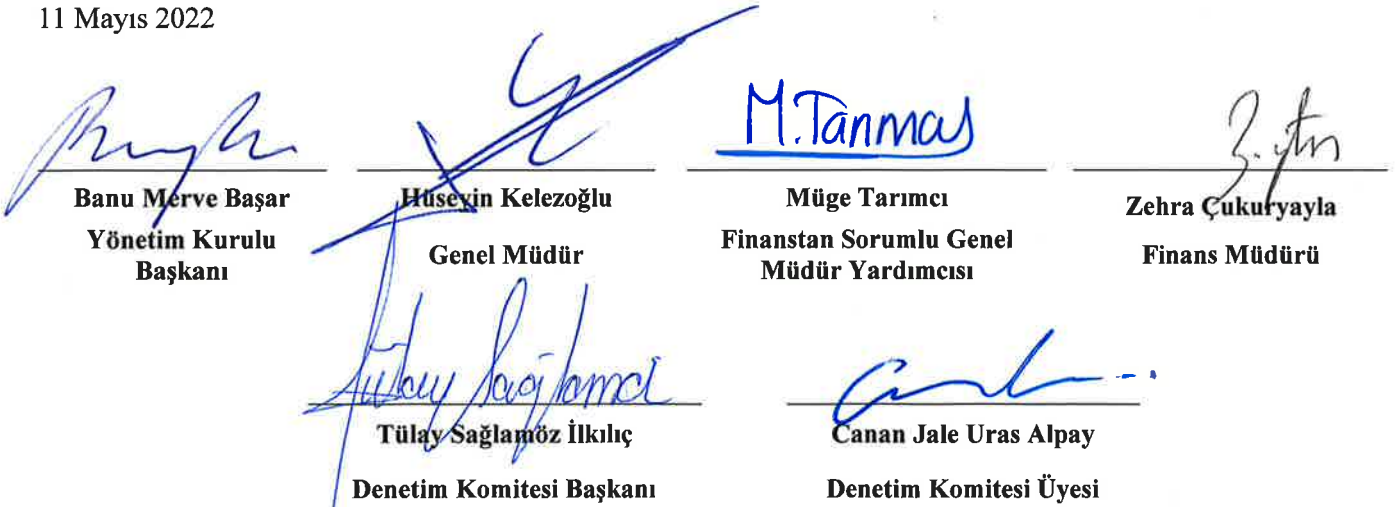 11 Mayıs 2022
M.Tanmaş
Banu Merve Başar
Yönetim Kurulu
Başkanı
Hüseyin Kelezoğlu
Genel Müdür
Müge Tarımcı
Finanstan Sorumlu Genel
Müdür Yardımcısı
Zehra Çukuryayla
Finans Müdürü
Tülay Sağlamöz İlkılıç
Denetim Komitesi Başkanı
Canan Jale Uras Alpay
Denetim Komitesi Üyesi